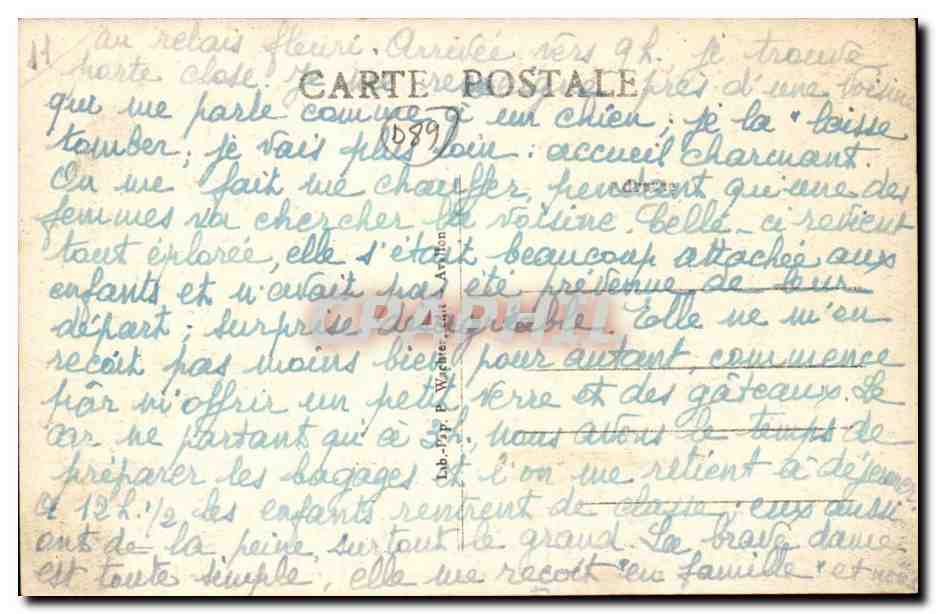 11 au relais fleuri. Arrivée vers 9h. je trouve
porte close. Je me renseigne près d'une voisine
CARTE POSTALE
qui me parle comme à un chien ; je la "laisse
D89
tomber ; je vais plus loin : accueil charmant.
On me fait me chauffer pendant qu'une des
Adresse
femmes va chercher la voisine. Celle-ci revient
tout éplorée, elle s'était beaucoup attachée aux
enfants et n'avait pas été prévenue de leur
départ ; surprise désagréable. Elle ne m'en
CPAPHIL
reçoit pas moins bien pour autant, commence
par m'offrir un petit verre et des gâteaux. Le
car ne partant qu'à 3h, nous avons le temps de
préparer les bagages et l'on me retient à déjeuner
A 12h.1/2 les enfants rentrent de classe, eux aussi
ont de la peine surtout le grand. La brave dame
est toute simple, elle me reçoit "en famille" et nous
Lib.-Pap. P. Wachter, édit. Avallon